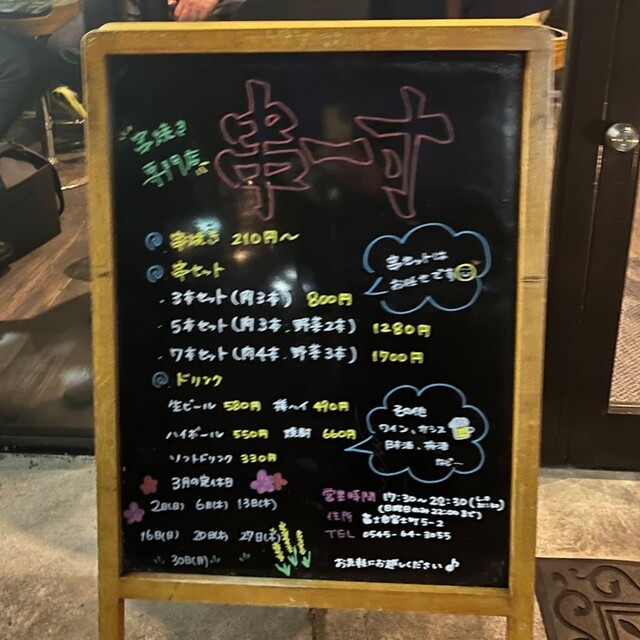 串焼き
専門店
串一寸
串焼き 210円〜
串セット
・3本セット(肉3本) 800円
・5本セット(肉3本、野菜2本) 1280円
・7本セット(肉4本、野菜3本) 1700円
串セットは
おまかせです
ドリンク
生ビール 580円 酎ハイ 490円
ハイボール 550円 焼酎 660円
ソフトドリンク 330円
その他
ワイン、カシス
日本酒、梅酒
など…
3月の定休日
2(日) 6(木) 13(木)
16(日) 20(木) 27(木)
30(月)
営業時間 17:30〜22:30
(日曜日のみ 22:00まで)
住所 富士市富士町5-2
TEL 0545-64-3055
お気軽にお越しください♪